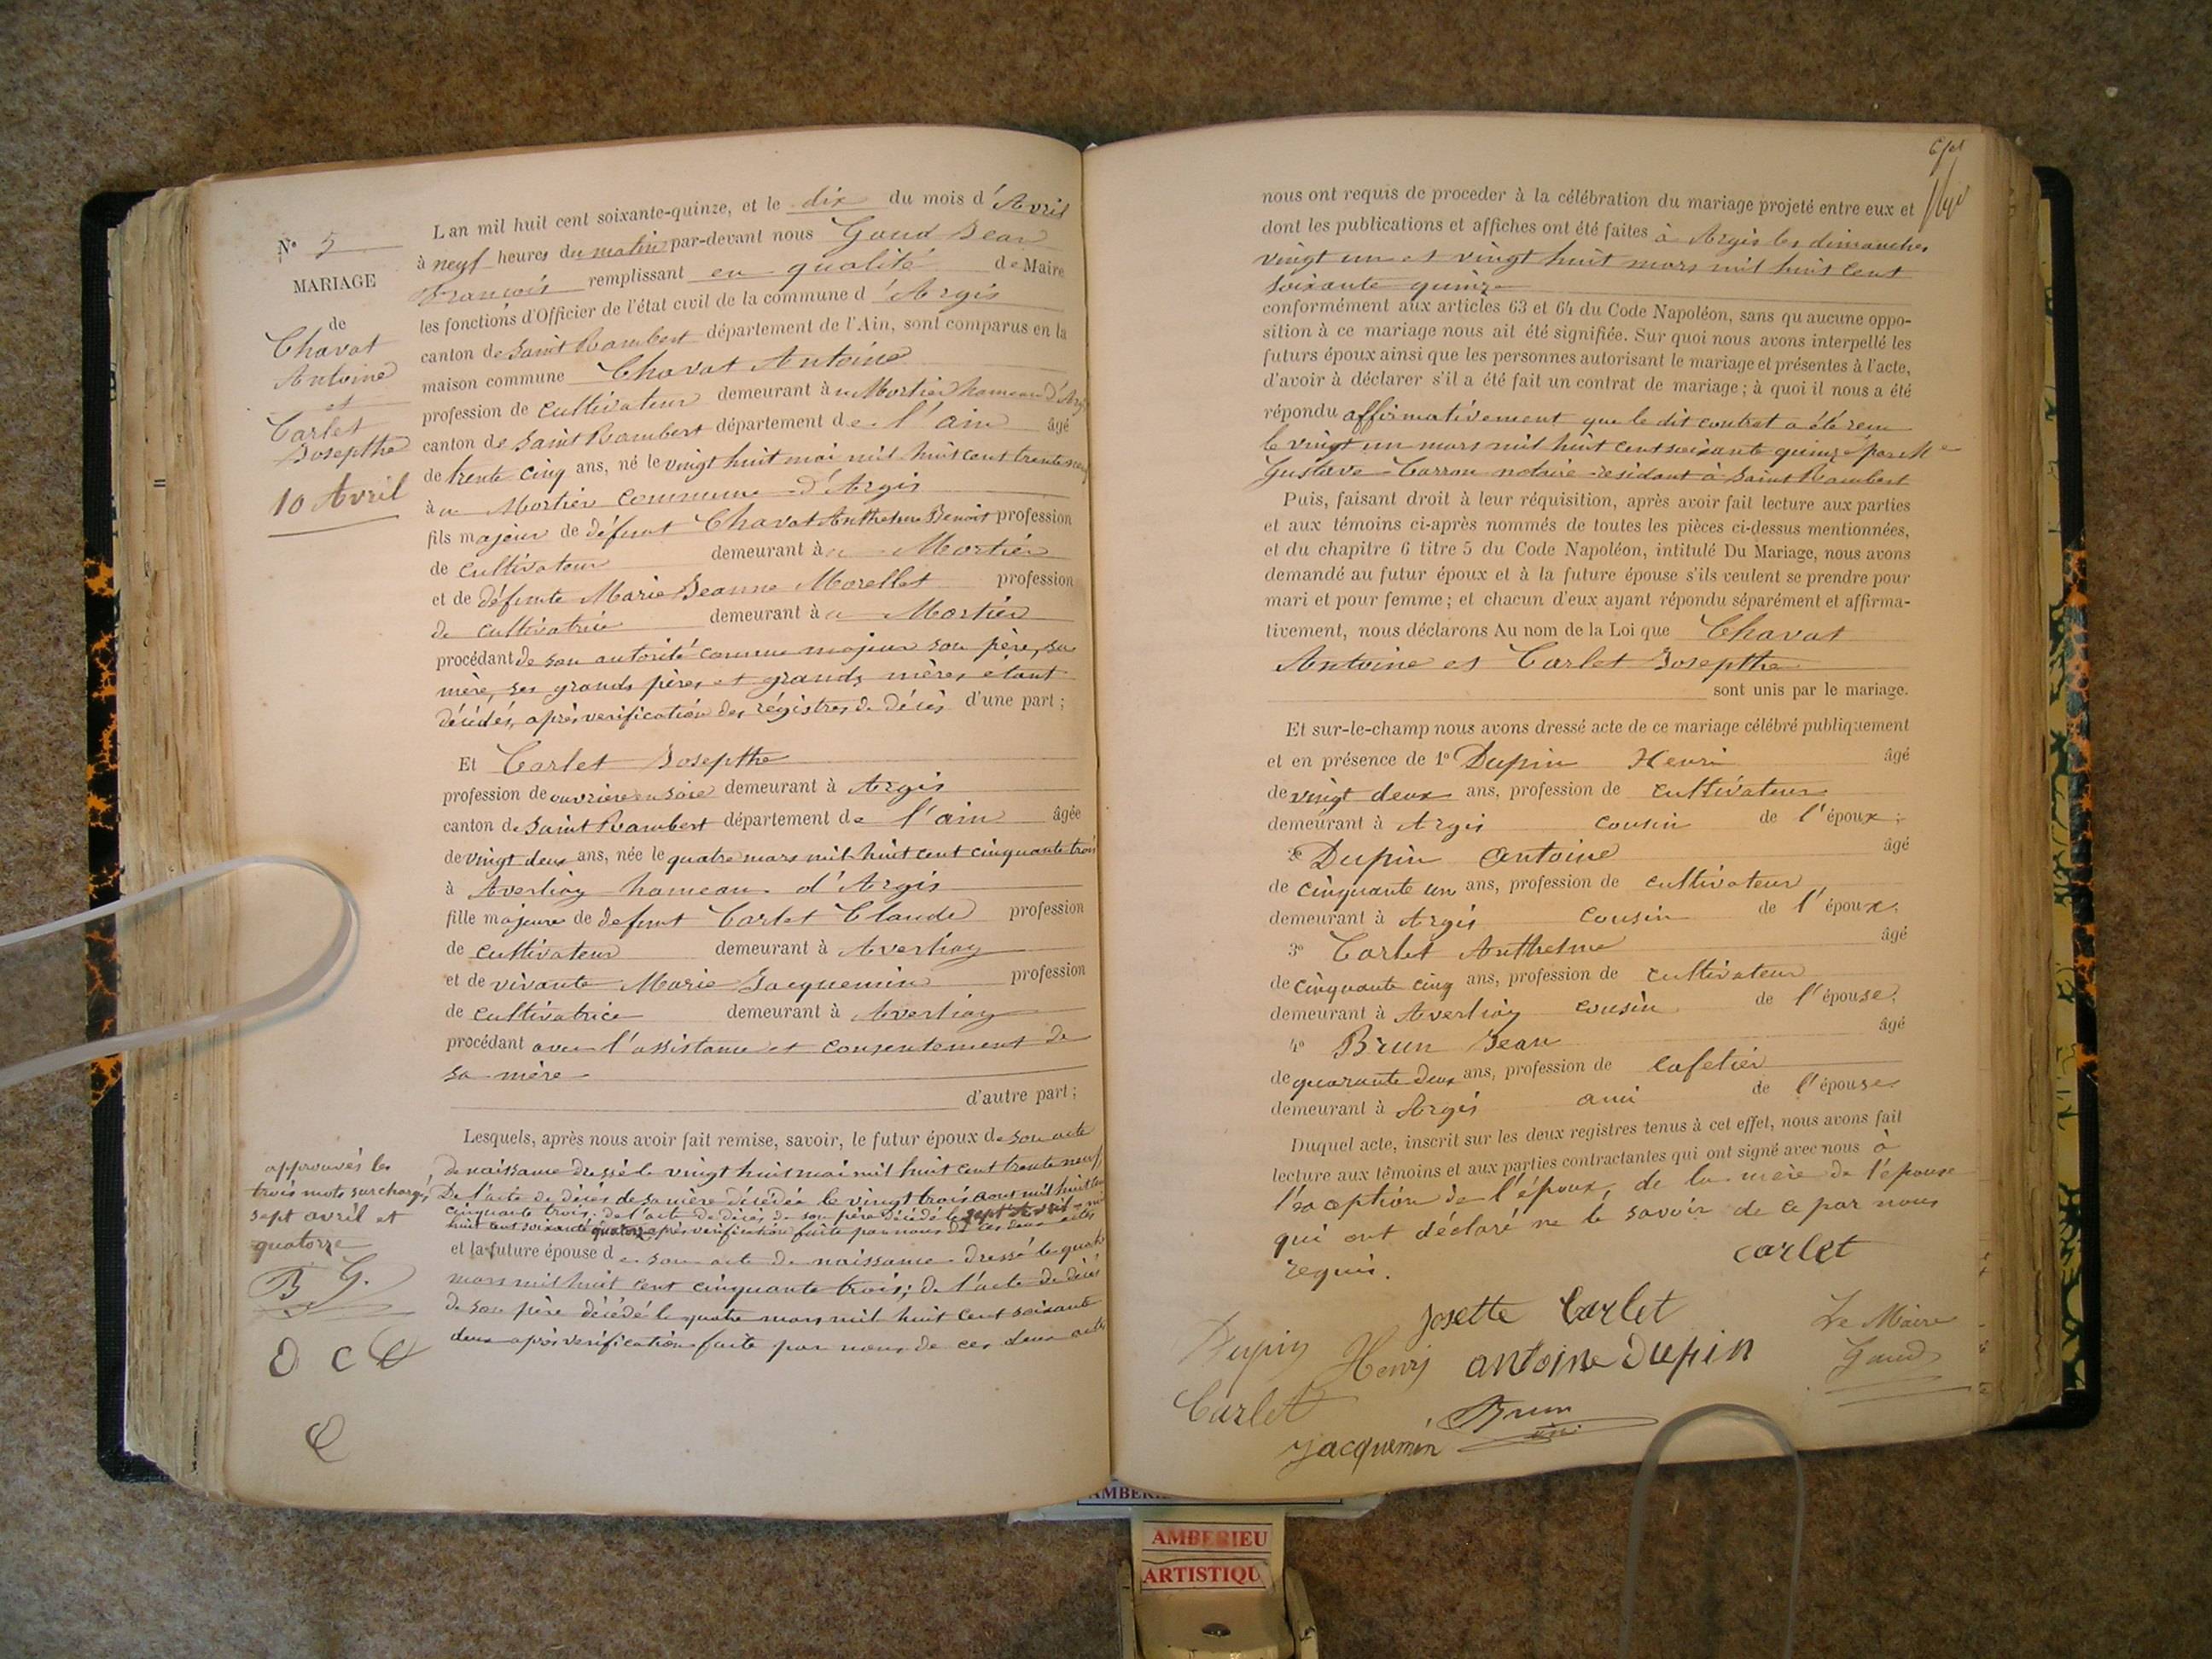 N° 5
MARIAGE
de
Chavat
Antoine
et
Carlet
Josepthe
10 Avril
approuvés les
trois mots surchargés
sept avril et
quatorze
B G.
Lan mil huit cent soixante-quinze, et le dix du mois d'Avril
à neuf heures du matin par-devant nous Gaud Jean
François remplissant en qualité de Maire
les fonctions d'Officier de l'état civil de la commune d'Argis
canton de Saint Rambert département de l'Ain, sont comparus en la
maison commune Chavat Antoine
profession de cultivateur demeurant à Mortier hameau d'Arg
canton de Saint Rambert département de l'ain âgé
de trente cinq ans, né le vingt huit mai mil huit cent trente neuf
à Mortier commune d'Argis
fils majeur de défunt Chavat Anthelme Benoit profession
de cultivateur demeurant à Mortier
et de défunte Marie Jeanne Morellet profession
de cultivatrice demeurant à Mortier
procédant de son autorité comme majeur son père, sa
mère, ses grands pères et grands mères étant
décédés, après verification des régistres de décès d'une part ;
Et Carlet Josepthe
profession de ouvrière en soie demeurant à Argis
canton de Saint Rambert département de l'ain âgée
de vingt deux ans, née le quatre mars mil huit cent cinquante trois
à Averliaz hameau d'Argis
fille majeure de defunt Carlet Claude profession
de cultivateur demeurant à Averliaz
et de vivante Marie Jacquemin profession
de cultivatrice demeurant à Averliaz
procédant avec l'assistance et consentement de
sa mère
d'autre part ;
Lesquels, après nous avoir fait remise, savoir, le futur époux de son acte
de naissance dressé le vingt huit mai mil huit cent trente neuf
De l'acte de décès de sa mère décédée le vingt trois aout mil huit cent
cinquante trois. de l'acte de décès de son père décédé le sept Avril mil
huit cent soixante quatorze après vérification faite par nous de ces deux actes
et la future épouse de son acte de naissance dressé le quatre
mars mil huit cent cinquante trois ; de l'acte de décès
de son père décédé le quatre mars mil huit cent soixante
deux après verification faite par nous de ces deux actes
nous ont requis de proceder à la célébration du mariage projeté entre eux et
dont les publications et affiches ont été faites à Argis les dimanches
vingt un et vingt huit mars mil huit cent
soixante quinze
conformément aux articles 63 et 64 du Code Napoléon, sans qu aucune oppo-
sition à ce mariage nous ait été signifiée. Sur quoi nous avons interpellé les
futurs époux ainsi que les personnes autorisant le mariage et présentes à l'acte,
d'avoir à déclarer s'il a été fait un contrat de mariage ; à quoi il nous a été
répondu affirmativement que le dit contrat a été recu
le vingt un mars mil huit cent soixante quinze par Me
Gustave Carron notaire résidant à Saint Rambert
Puis, faisant droit à leur réquisition, après avoir fait lecture aux parties
et aux témoins ci-après nommés de toutes les pièces ci-dessus mentionnées,
et du chapitre 6 titre 5 du Code Napoléon, intitulé Du Mariage, nous avons
demandé au futur époux et à la future épouse s'ils veulent se prendre pour
mari et pour femme ; et chacun d'eux ayant répondu séparément et affirma-
tivement, nous déclarons Au nom de la Loi que Chavat
Antoine et Carlet Josepthe
sont unis par le mariage.
Et sur-le-champ nous avons dressé acte de ce mariage célébré publiquement
et en présence de 1° Dupin Henri âgé
de vingt deux ans, profession de cultivateur
demeurant à Argis cousin de l'époux ;
2° Dupin Antoine âgé
de cinquante un ans, profession de cultivateur
demeurant à Argis cousin de l'époux ;
3° Carlet Anthelme âgé
de cinquante cinq ans, profession de cultivateur
demeurant à Averliaz cousin de l'épouse ;
4° Brun Jean âgé
de quarante deux ans, profession de cafetier
demeurant à Argis ami de l'épouse
Duquel acte, inscrit sur les deux registres tenus à cet effet, nous avons fait
lecture aux témoins et aux parties contractantes qui ont signé avec nous à
l'exception de l'époux, de la mère de l'épouse
qui ont déclaré ne le savoir de ce par nous
requis.
carlet
Josette Carlet
Dupin Henri antoine Dupin
Le Maire
Gaud
Carlet
Brun
Jacquemin
AMBERIEU
ARTISTIQU